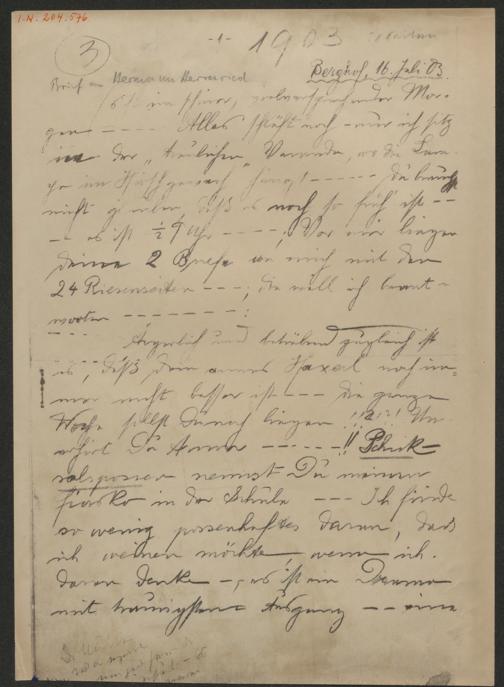 I.N. 204.576
3 -1- 1903
Brief an Hermann Heimried
Berghof, 16. Juli 03
Es ist ein schöner, vielversprechender Mor-
gen - - - - Alles schläft noch - nur ich sitz
in der „traulichen" Veranda, wo die
im hängt! - - - - - Du brauchst
nicht glauben, daß es noch so früh ist - -
- - es ist ½ 9 Uhr - - - - ; Vor mir liegen
deine 2 Briefe an mich mit den
24 Riesenseiten - - - ; die will ich beant-
worten - - - - - - - :
Ärgerlich und betrübend zugleich ist
es, daß Dein armes Haxerl noch im-
mer nicht besser ist - - - die ganze
Woche sollst Du noch liegen !!2!?!
Du Armer - - - - - !! Schick-
salsposse nennst Du meinen
Fiasko in der Schule - - - Ich finde
so wenig possenhaftes daran, daß
ich weinen möchte, wenn ich
daran denk - , es ist ein Drama
mit traurigstem Ausgang - - eine